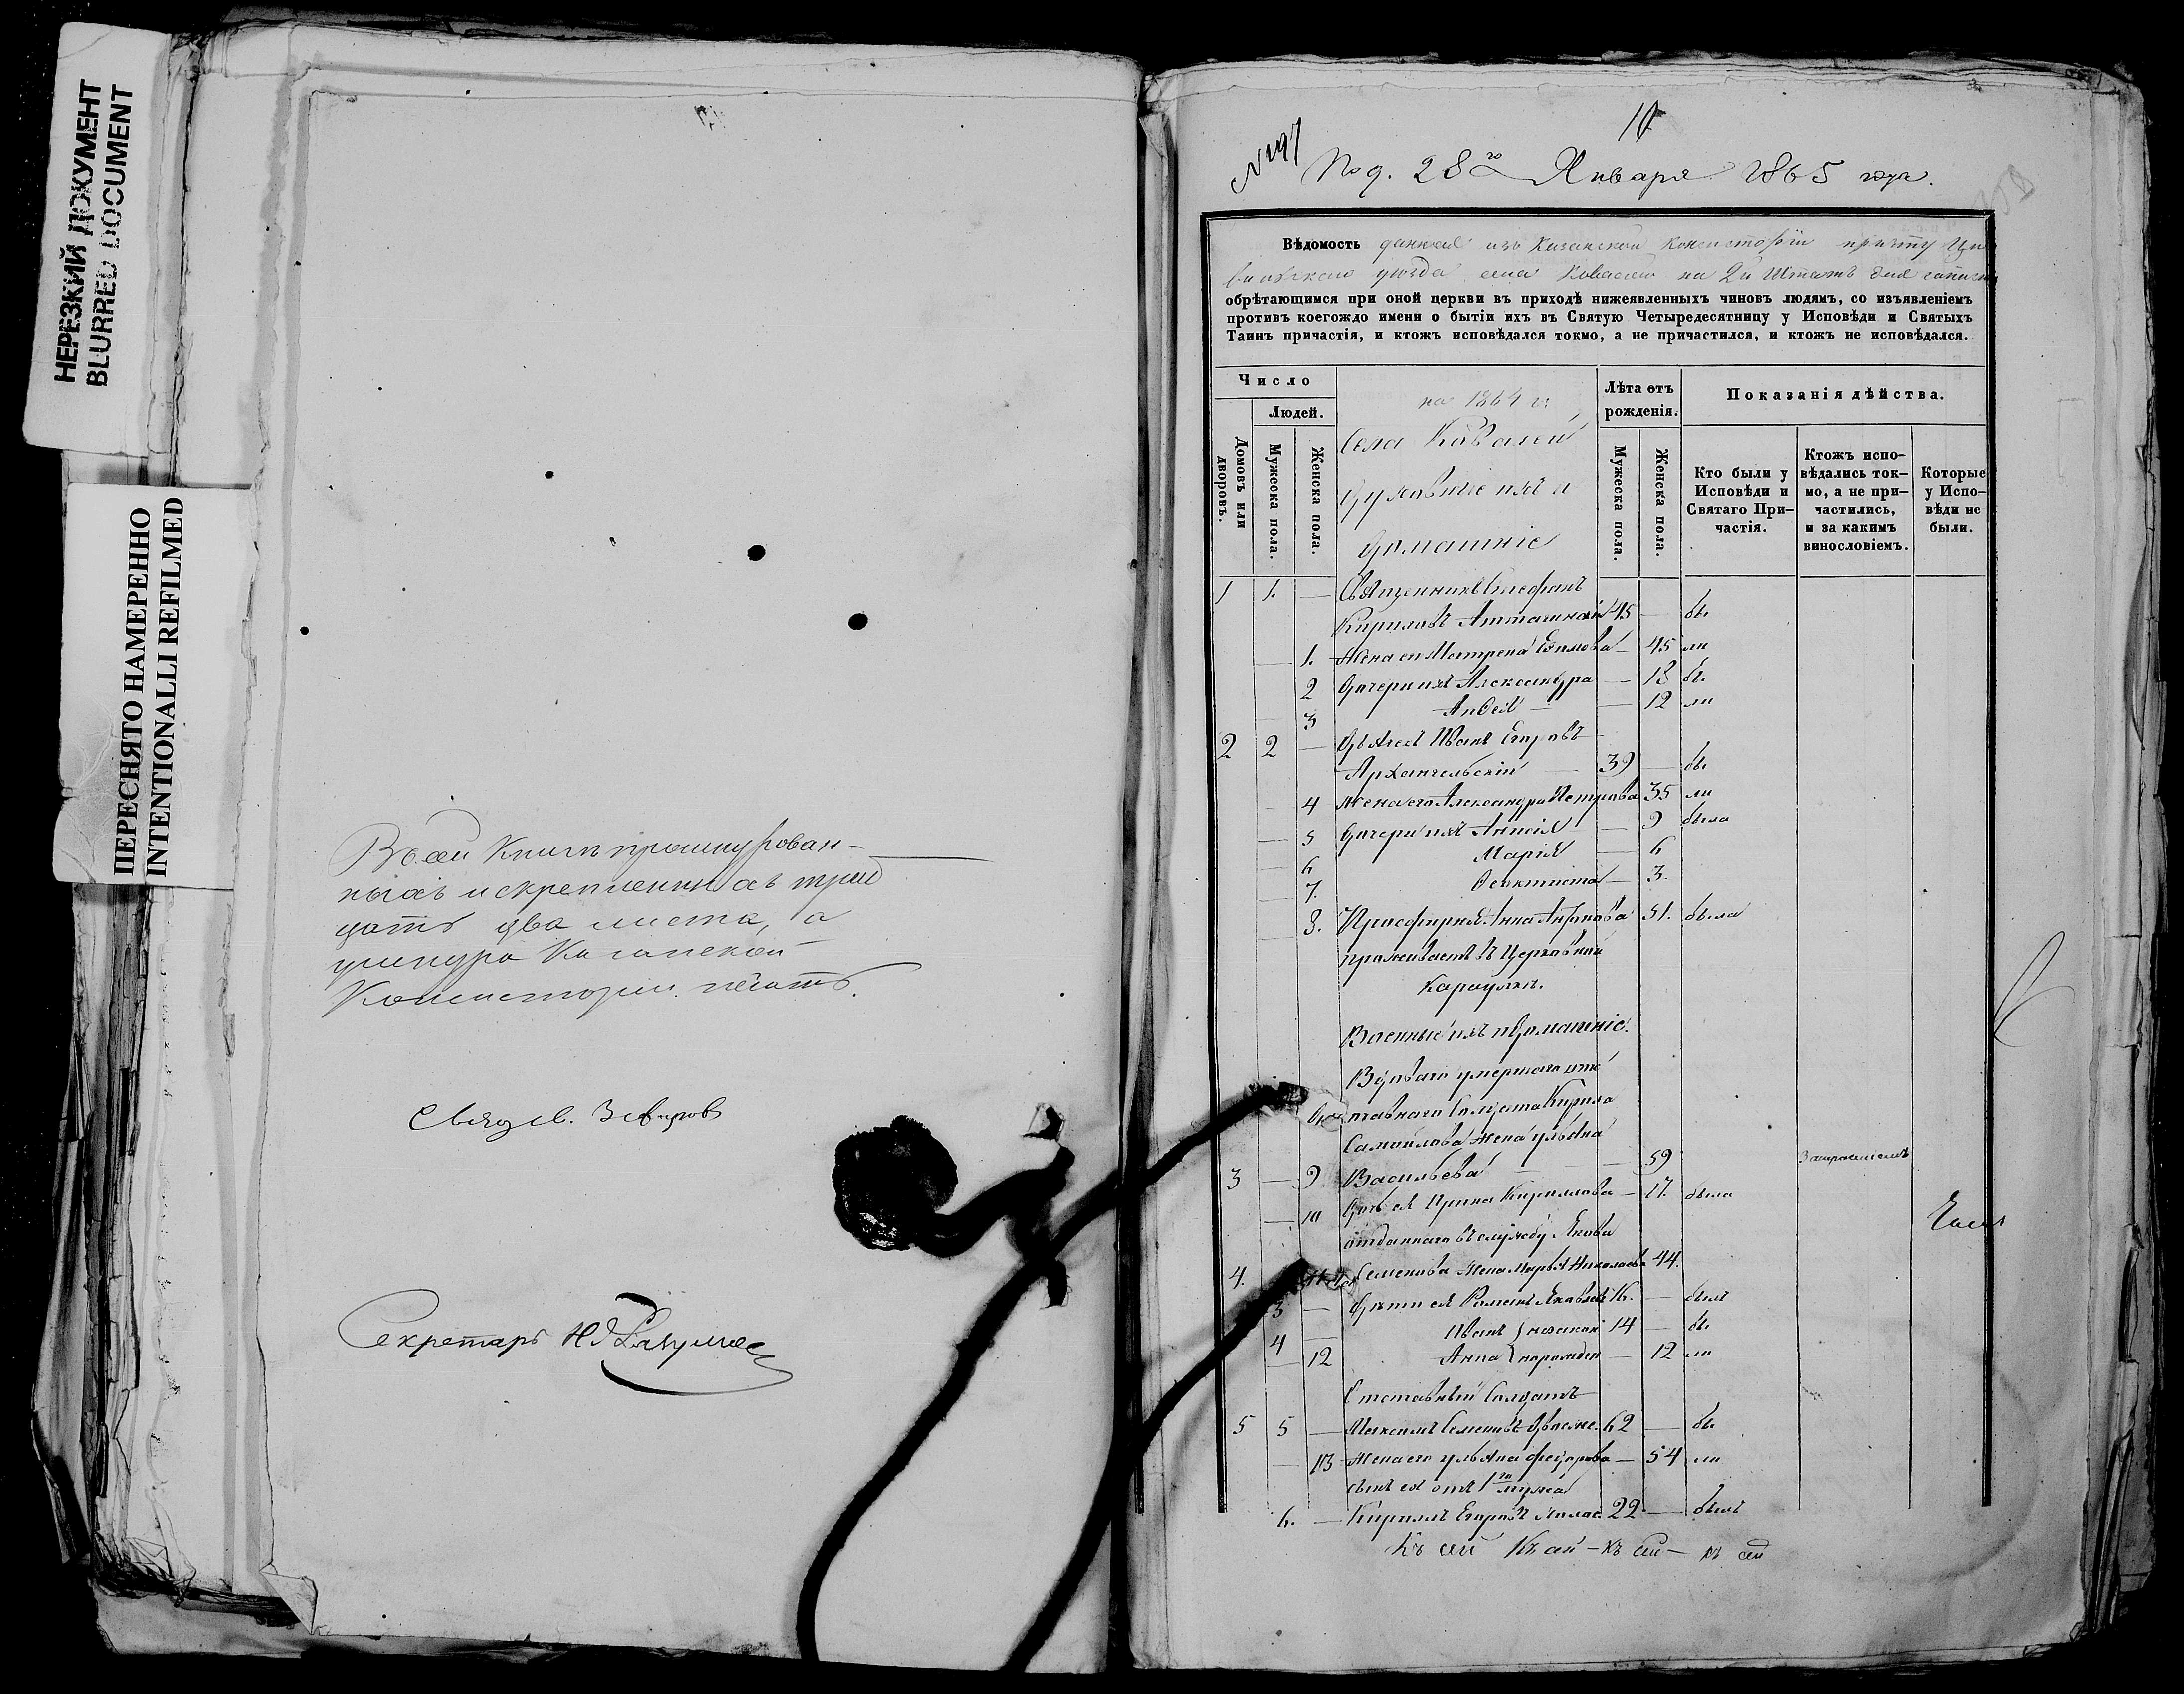 НЕРЕЗКИЙ ДОКУМЕНТ
BLURRED DOCUMENT
ПЕРЕСНЯТО НАМЕРЕННО
INTENTIONALLI REFILMED
Въ сей Книгѣ прошнурован-
ныхъ и скрепленныхъ трид
цать два листа, а
у шнура Казанской
Консисторіи печать.
Секретарь
10
№ 197
Под. 28го Января 1865 года.
Вѣдомость данная изъ Казанской Консисторіи причту Ци
вильскаго уѣзда села Ковалей на 2й Штатъ для записки
обрѣтающимся при оной церкви въ приходѣ нижеявленныхъ чиновъ людямъ, со изъявленіемъ
противъ коегождо имени о бытіи ихъ въ Святую Четыредесятницу у Исповѣди и Святыхъ
Таинъ причастія, и ктожъ исповѣдался токмо, а не причастился, и ктожъ не исповѣдался.
Число
Людей.
Домовъ или дворовъ.
Мужеска пола.
Женска пола.
на 1864 г.
Села Ковалей
Духовные ихъ и
домашніе
Лѣта отъ рожденія.
Мужеска пола.
Женска пола.
Показанія дѣйства.
Кто были у Исповѣди и Святаго При-частія.
Ктожъ испо-вѣдались ток-мо, а не при-частились, и за какимъ винословіемъ.
Которые у Испо-вѣди не были.
1 1. — Священникъ Стефанъ
Кириловъ 45 — бы
— 1. Жена его Матрена Ефимова — 45 ли
2 Дочери ихъ Александра — 13 бы
3 Анѳия — 12 ли
2 2 — Дьячекъ Иванъ Егоровъ
Архангельскій — 39 — бы
4 Жена его Александра Петрова 35 ли
— 5 Дочери ихъ — 9 была
— 6 Марія — 6
— 7. Ѳеоктиста — 3.
— 8. Просфирня Анна Антонова 51. была
проживаетъ въ Церковной
Караулкѣ.
Военные ихъ и домашніе.
Вдоваго умершаго от
ставнаго Солдата Кирила
Самойлова жена Ульяна
3 — 9 Васильева — 59
— 10 Дочь ея Ирина Кириллова — 17. была
отданнаго въ службу Якова
4. 11 Семенова жена Марья Николаева 44.
3 — Дѣти ея Романъ Яковлевъ 16. — былъ
4 — Иванъ 14 — бы
— 12 Анна — 12 ли
Отставный Солдатъ
5 5 — Максимъ Семеновъ 62 — бы
— 13 Жена его Ульяна Федорова — 54 ли
сынъ ея отъ 1го мужа
6. — Кириллъ Егоровъ 22 — былъ
Къ сей Къ сей — Къ сей — къ сей